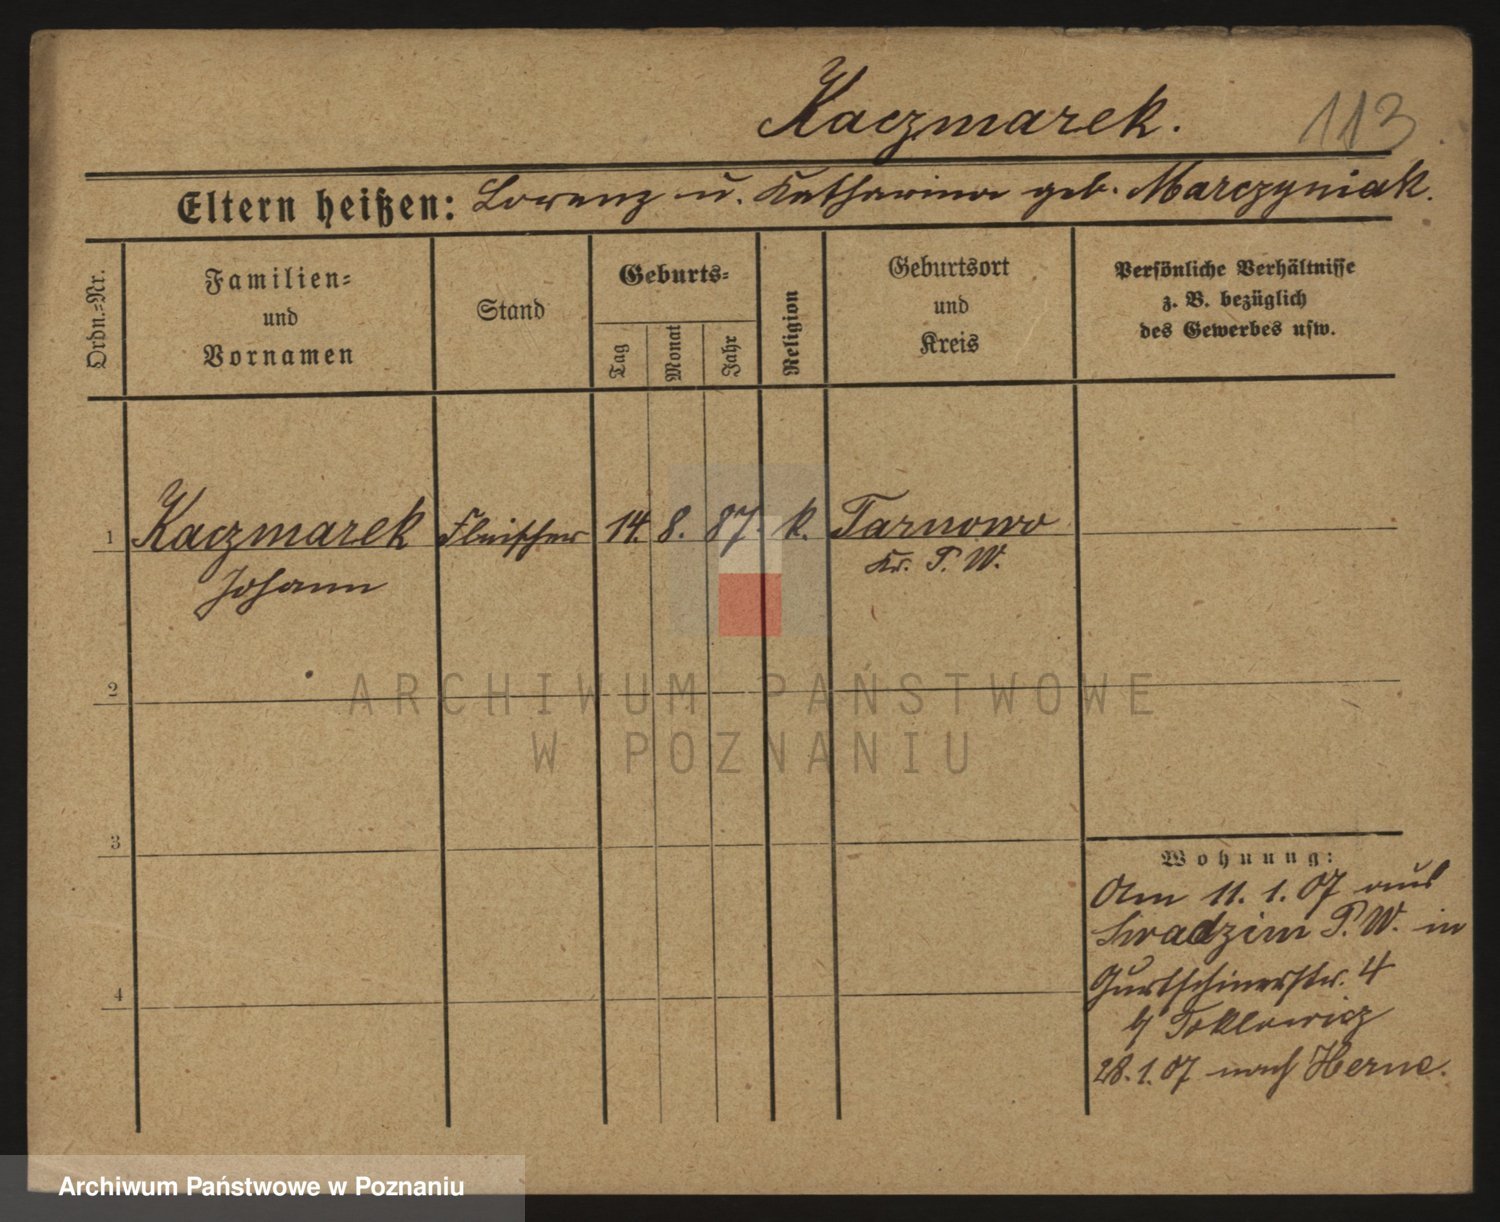 Kaczmarek.
113
Eltern heißen: Lorenz u. Katharina geb. Marczyniak.
Ordn.-Nr.
Familien-
und
Vornamen
Stand
Geburts-
Tag
Monat
Jahr
Religion
Geburtsort
und
Kreis
Persönliche Verhältnisse
z. B. bezüglich
des Gewerbes usw.
1 Kaczmarek Fleischer 14. 8. 87. k. Tarnowo
Johann Kr. P. W.
2
3
4
Wohnung:
Am 11. 1. 07 aus
Swadzim P. W. in
Gurtschinerstr. 4
28. 1. 07 nach Herne.
ARCHIWUM PAŃSTWOWE
W POZNANIU
Archiwum Państwowe w Poznaniu